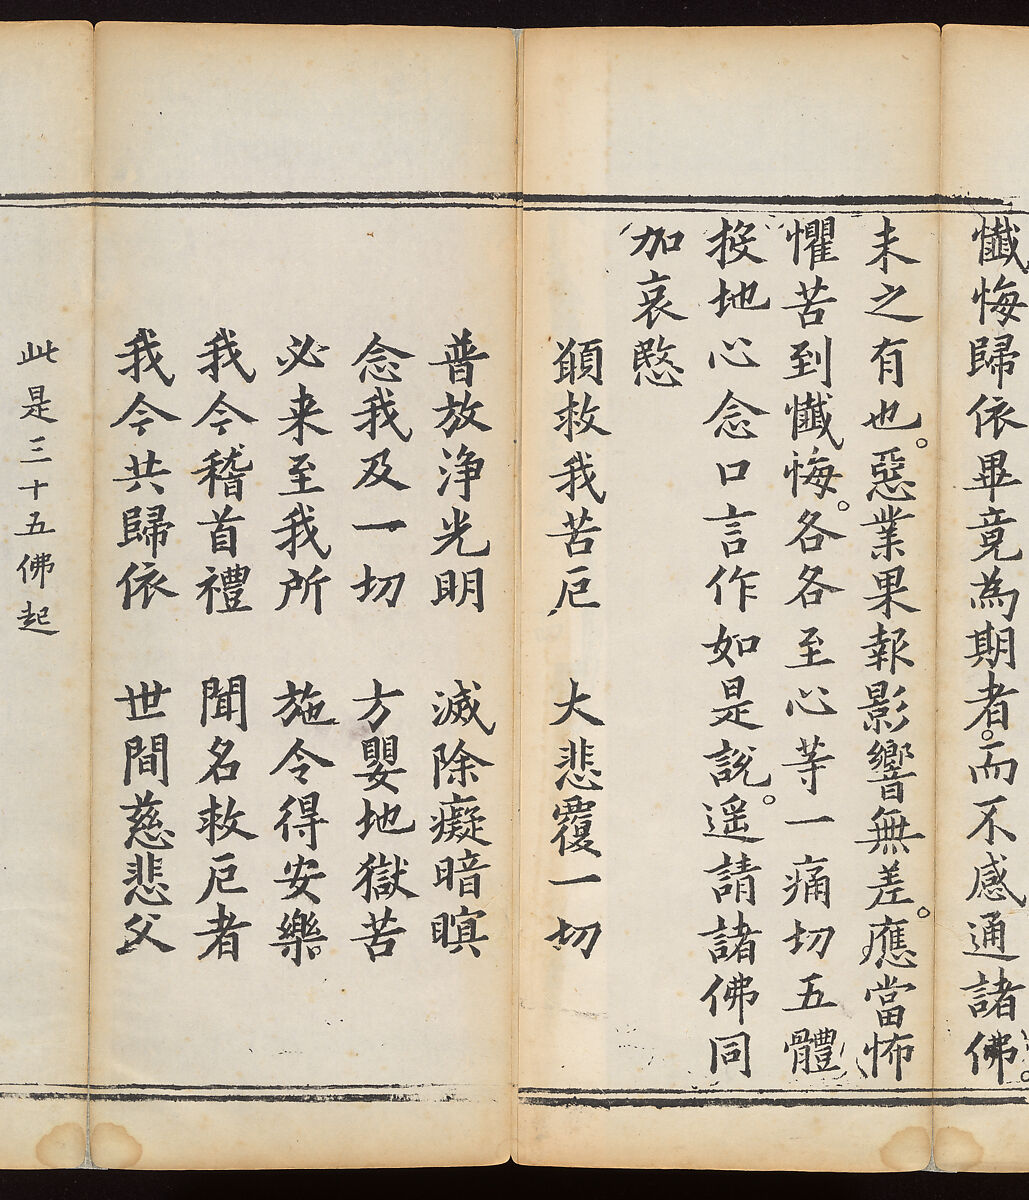 懺悔歸依畢竟為期者。而不感通諸佛。
未之有也。惡業果報影響無差。應當怖
懼苦到懺悔。各各至心等一痛切五體
投地心念口言作如是說。遥請諸佛同
加哀愍
願救我苦厄　大悲覆一切
普放淨光明　滅除癡暗暝
念我及一切　方嬰地獄苦
必来至我所　施令得安樂
我今稽首禮　聞名救厄者
我今共歸依　世間慈悲父
此是三十五佛起